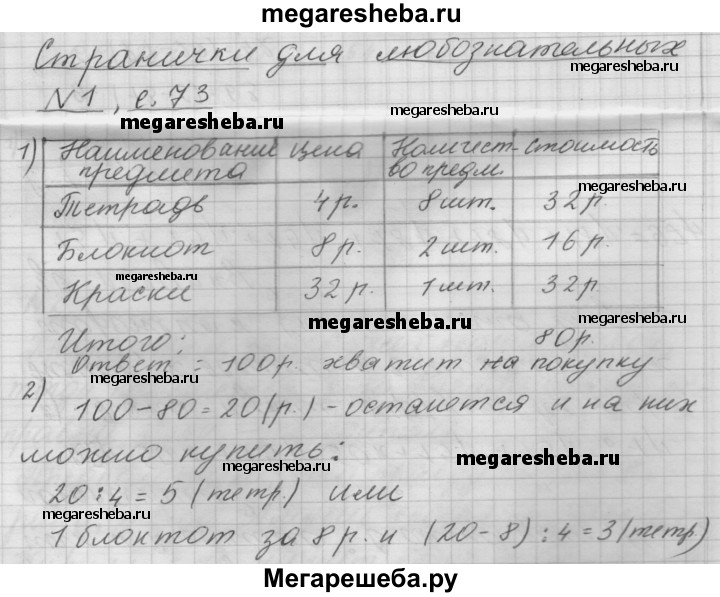 megaresheba.ru
Странички для любознательных
megaresheba.ru
№1, с. 73
megaresheba.ru
megaresheba.ru
1) Наименование предмета | цена | Количест-во предм. | стоимость
megaresheba.ru
Тетрадь | 4 р. | 8 шт. | 32 р.
Блокнот | 8 р. | 2 шт. | 16 р.
megaresheba.ru
Краски | 32 р. | 1 шт. | 32 р
megaresheba.ru
megaresheba.ru
Итого: 80 р.
Ответ: 100 р. хватит на покупку
megaresheba.ru
2) 100-80=20(р.) - останется и на них
можно купить:
megaresheba.ru
megaresheba.ru
20:4=5 (тетр.) или
megaresheba.ru
megaresheba.ru
1 блоктот за 8 р. и (20-8):4=3(тетр)
Мегарешеба.ру